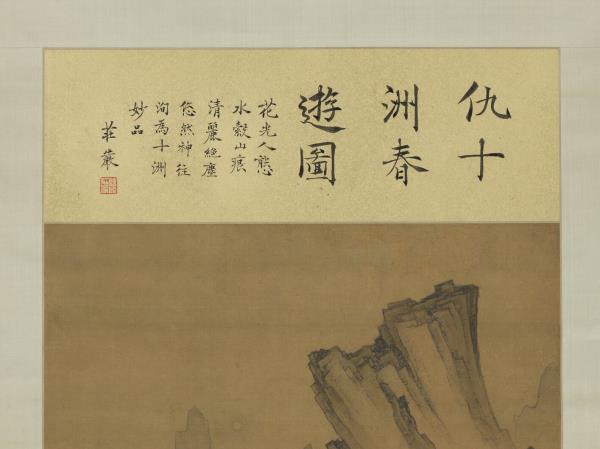 仇十
洲春
遊圖
花光人態
水縠山痕
清麗絕塵
悠然神往
洵為十洲
妙品
莊嚴